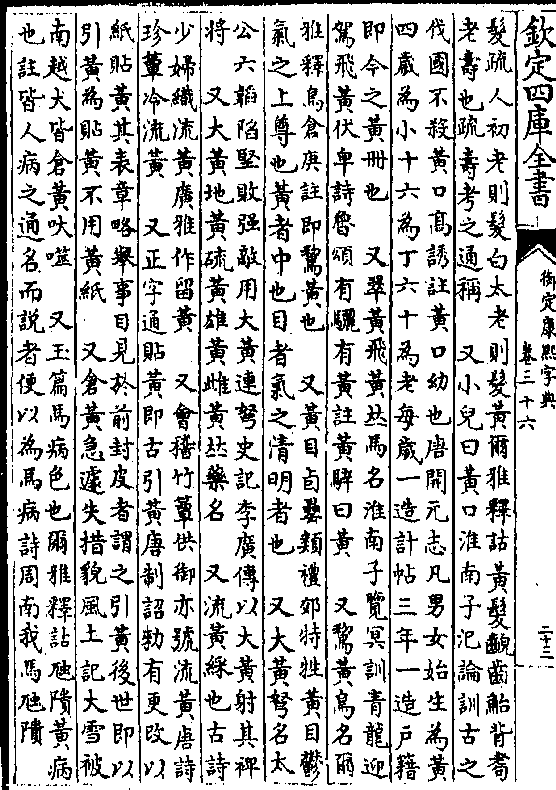 欽定四庫全書
御定康熙字典
卷三十六
二十三
髮疏人初老則髮白太老則髮黃爾雅釋詁黃髮齯齒鮐背耇
老壽也疏壽考之通稱　又小兒曰黃口淮南子氾論訓古之
伐國不殺黃口高誘註黃口幼也唐開元志凡男女始生為黃
四歲為小十六為丁六十為老每歲一造計帖三年一造戶籍
即今之黃冊也　又翠黃飛黃𠀤馬名淮南子覽冥訓青龍迎
駕飛黃伏皁詩魯頌有驪有黃註黃騂曰黃　又鶩黃鳥名爾
雅釋鳥倉庚註即鵹黃也　又黃目卣罍類禮郊特牲黃目鬱
氣之上尊也黃者中也目者氣之清明者也　又大黃弩名太
公六韜陷堅敗强敵用大黃連弩史記李廣傳以大黃射其裨
將　又大黃地黃硫黃雄黃雌黃𠀤藥名　又流黃綵也古詩
少婦織流黃廣雅作留黃　又會稽竹簟供御亦號流黃唐詩
珍簟冷流黃　又正字通貼黃即古引黃唐制詔勅有更改以
紙貼黃其表章略舉事目見於前封皮者謂之引黃後世即以
引黃為貼黃不用黃紙　又倉黃急遽失措貌風土記大雪被
南越犬皆倉黃吠噬　又玉篇馬病色也爾雅釋詁虺隤黃病
也註皆人病之通名而說者便以為馬病詩周南我馬虺隤